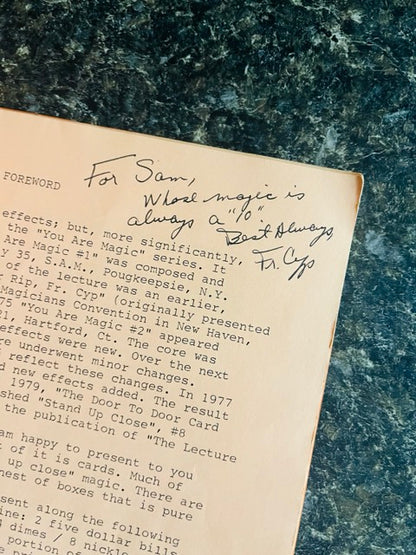 FOREWORD
For Sam,
Whose magic is
always a "10".
Best Always,
Fr. Cyp
effects; but, more significantly,
the "You Are Magic" series. It
Are Magic #1" was composed and
y 35, S.A.M., Pougkeepsie, N.Y.
of the lecture was an earlier,
f Rip, Fr. Cyp" (originally presented
Magicians Convention in New Haven,
75 "You Are Magic #2" appeared
21, Hartford, Ct. The core was
effects were new. Over the next
re underwent minor changes.
reflect these changes. In 1977
d new effects added. The result
1979, "The Door To Door Card
shed "Stand Up Close", #8
the publication of "The Lecture
am happy to present to you
t of it is cards. Much of
up close" magic. There are
nest of boxes that is pure
sent along the following
ine: 2 five dollar bills
4 dimes / 8 nickle
portion of